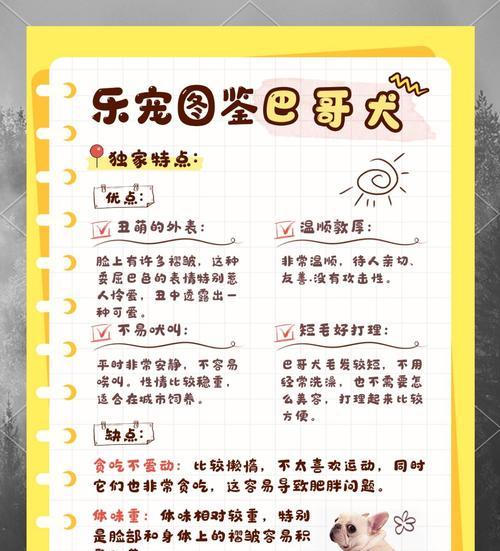 乐宠图鉴巴哥犬
独家特点:
优点:
丑萌的外表:
脸上有许多褶皱，这种
委屈巴巴的表情特别惹
人怜爱，丑中透露出一
种可爱。
温顺敦厚:
非常温顺，待人亲切、
友善.没有攻击性。
不易吠叫:
平时非常安静，不容易
唉叫。性情比较稳重，
适合在城市饲养。
短毛好打理:
巴哥犬毛发较短，不用
经常洗澡，也不需要怎
么美容，打理起来比较
方便。
缺点:
贪吃不爱动: 比较懒惰，不太喜欢运动，同时
它们也非常贪吃，这容易导致肥胖问题。
体味重: 体味相对较重，特别
是脸部和身体上的褶皱容易积